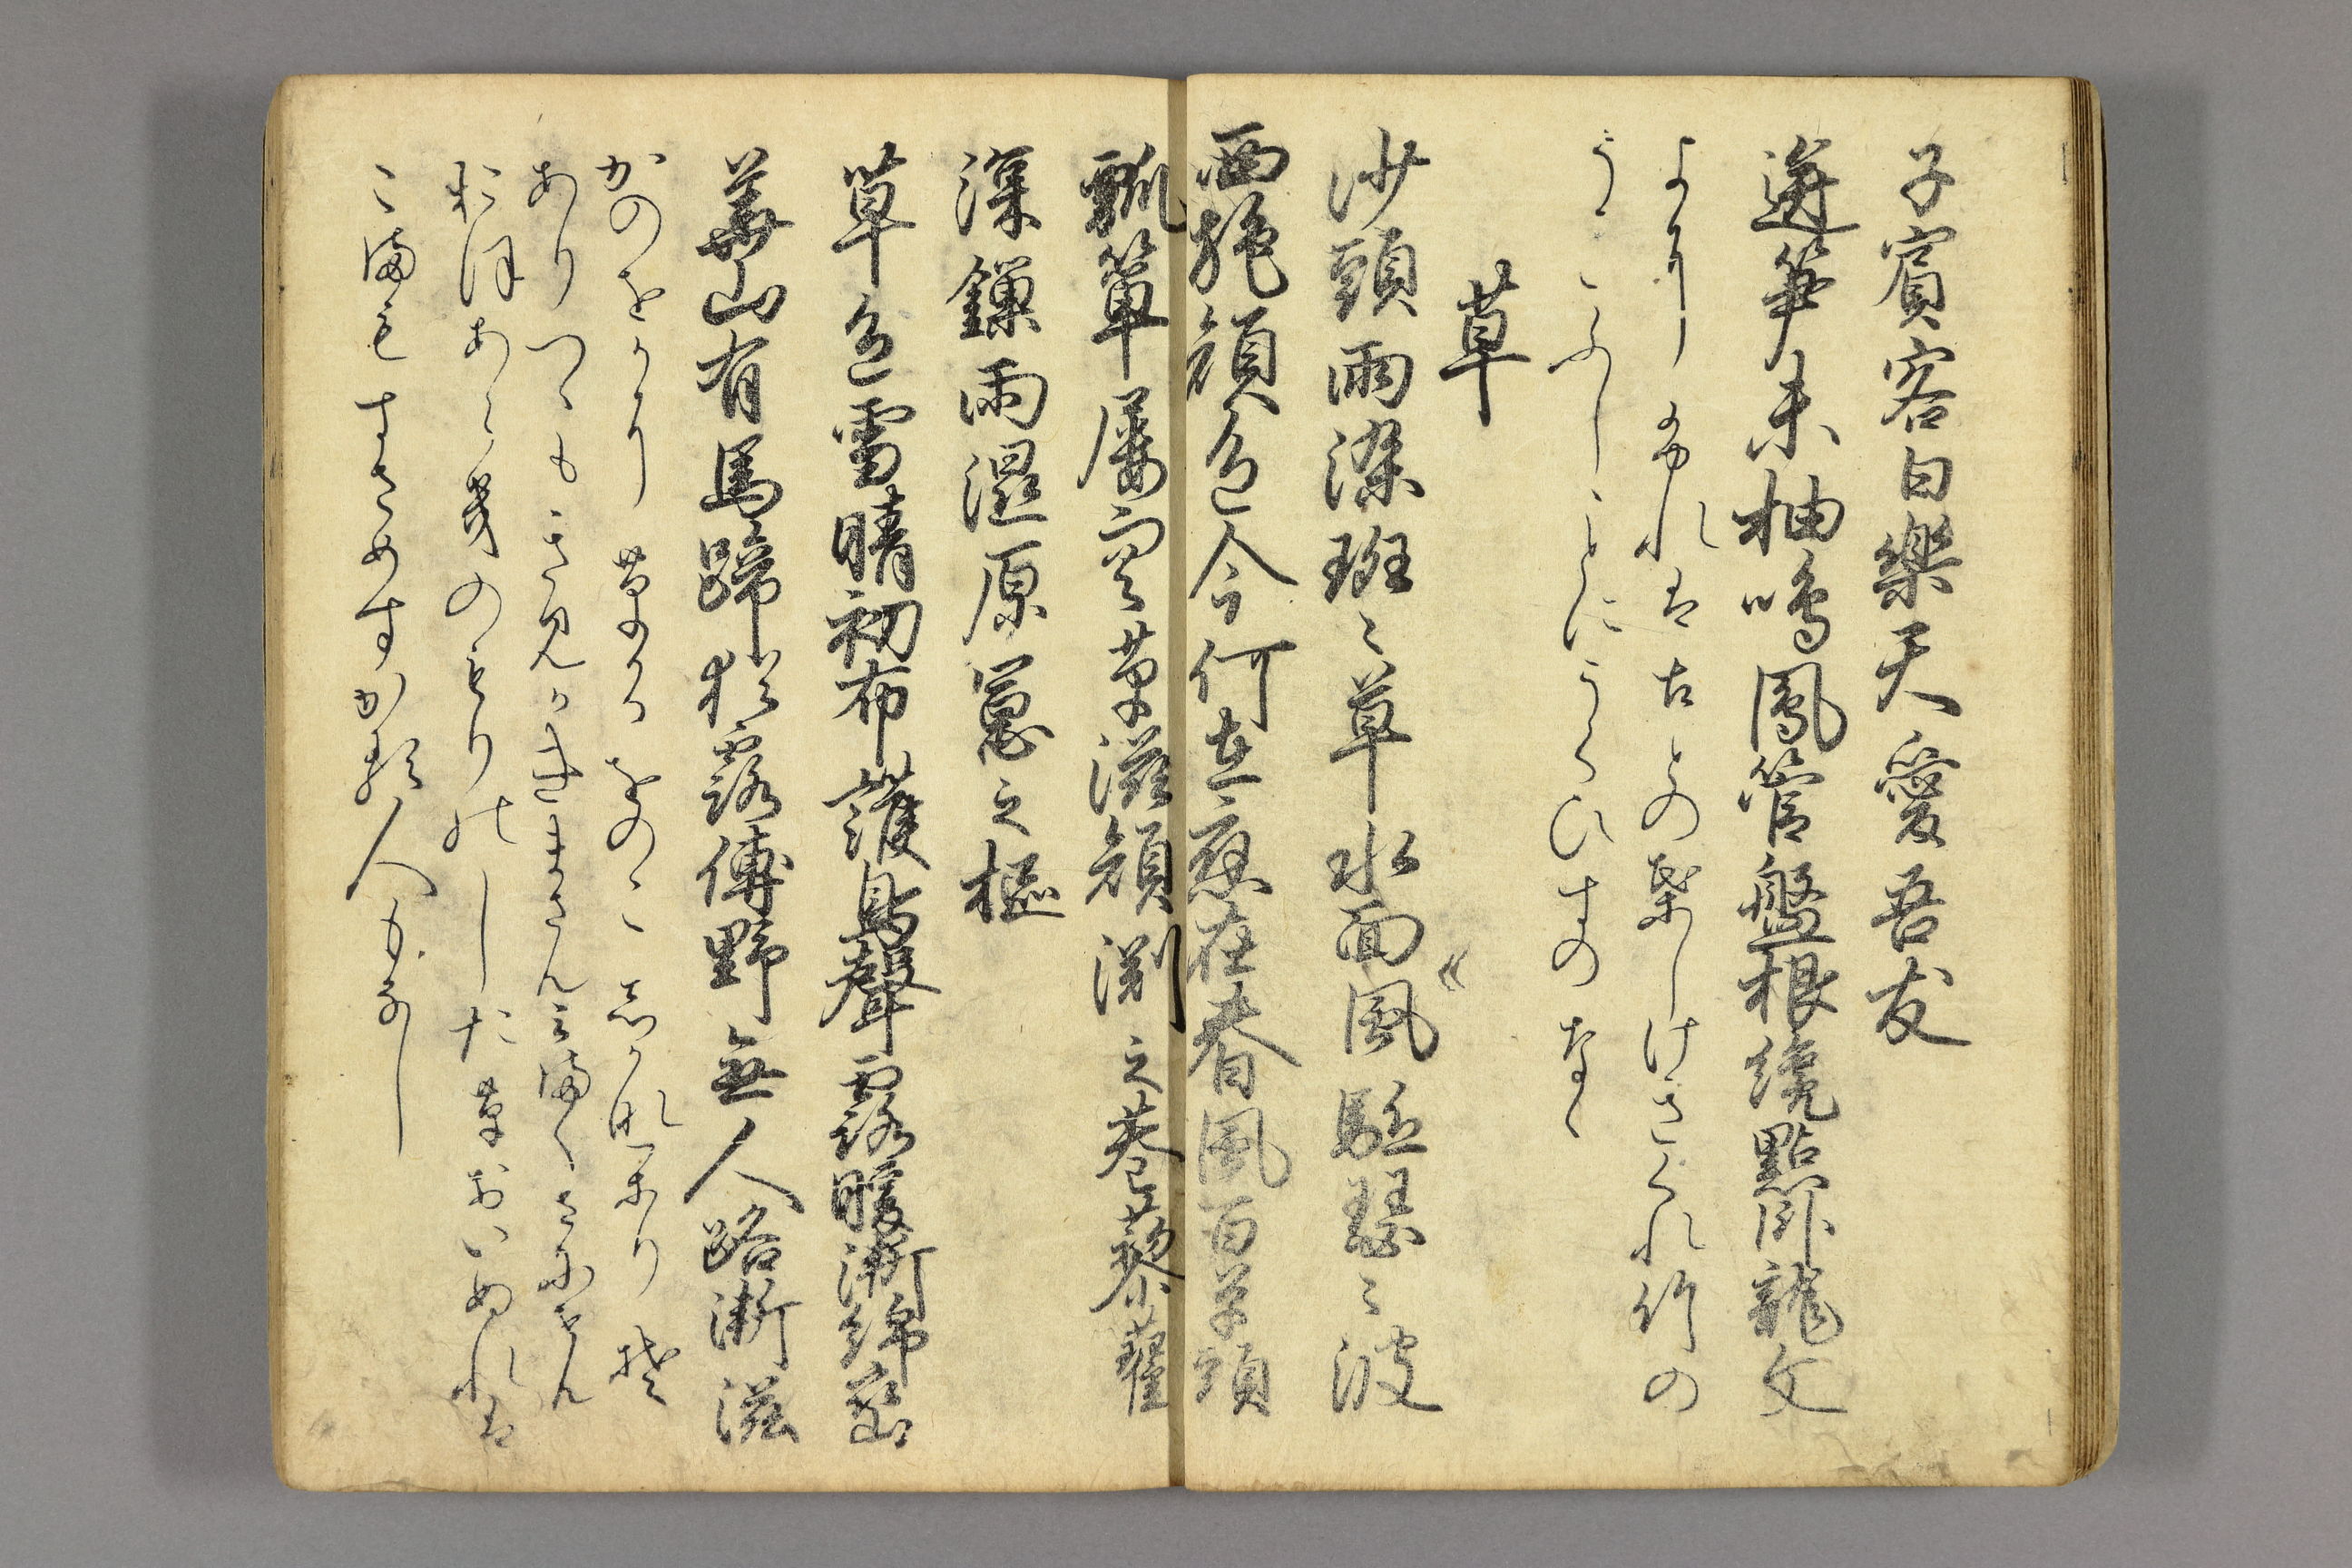 子賓客白樂天愛吾友
迸笋未抽鳴鳳管盤根纔點臥龍文
よにふれは古との葉しけきくれ竹の
うきふしことにうくひすのなく
草
沙頭雨染斑〻草水面風驅瑟〻波
西施顔色今何在應在春風百草頭
瓢箪屡空草滋顔淵之巷藜藿
深鎖雨濕原憲之樞
草色雪晴初布護鳥聲露暖漸綿蠻
華山有馬蹄猶露傅野無人路漸滋
かのをかに草かるをのこ志かなかりそ
ありつゝもきみかきまさんみまくさにせん
おほあらきのもりのした草おいぬれは
こまもすさめすかる人もなし